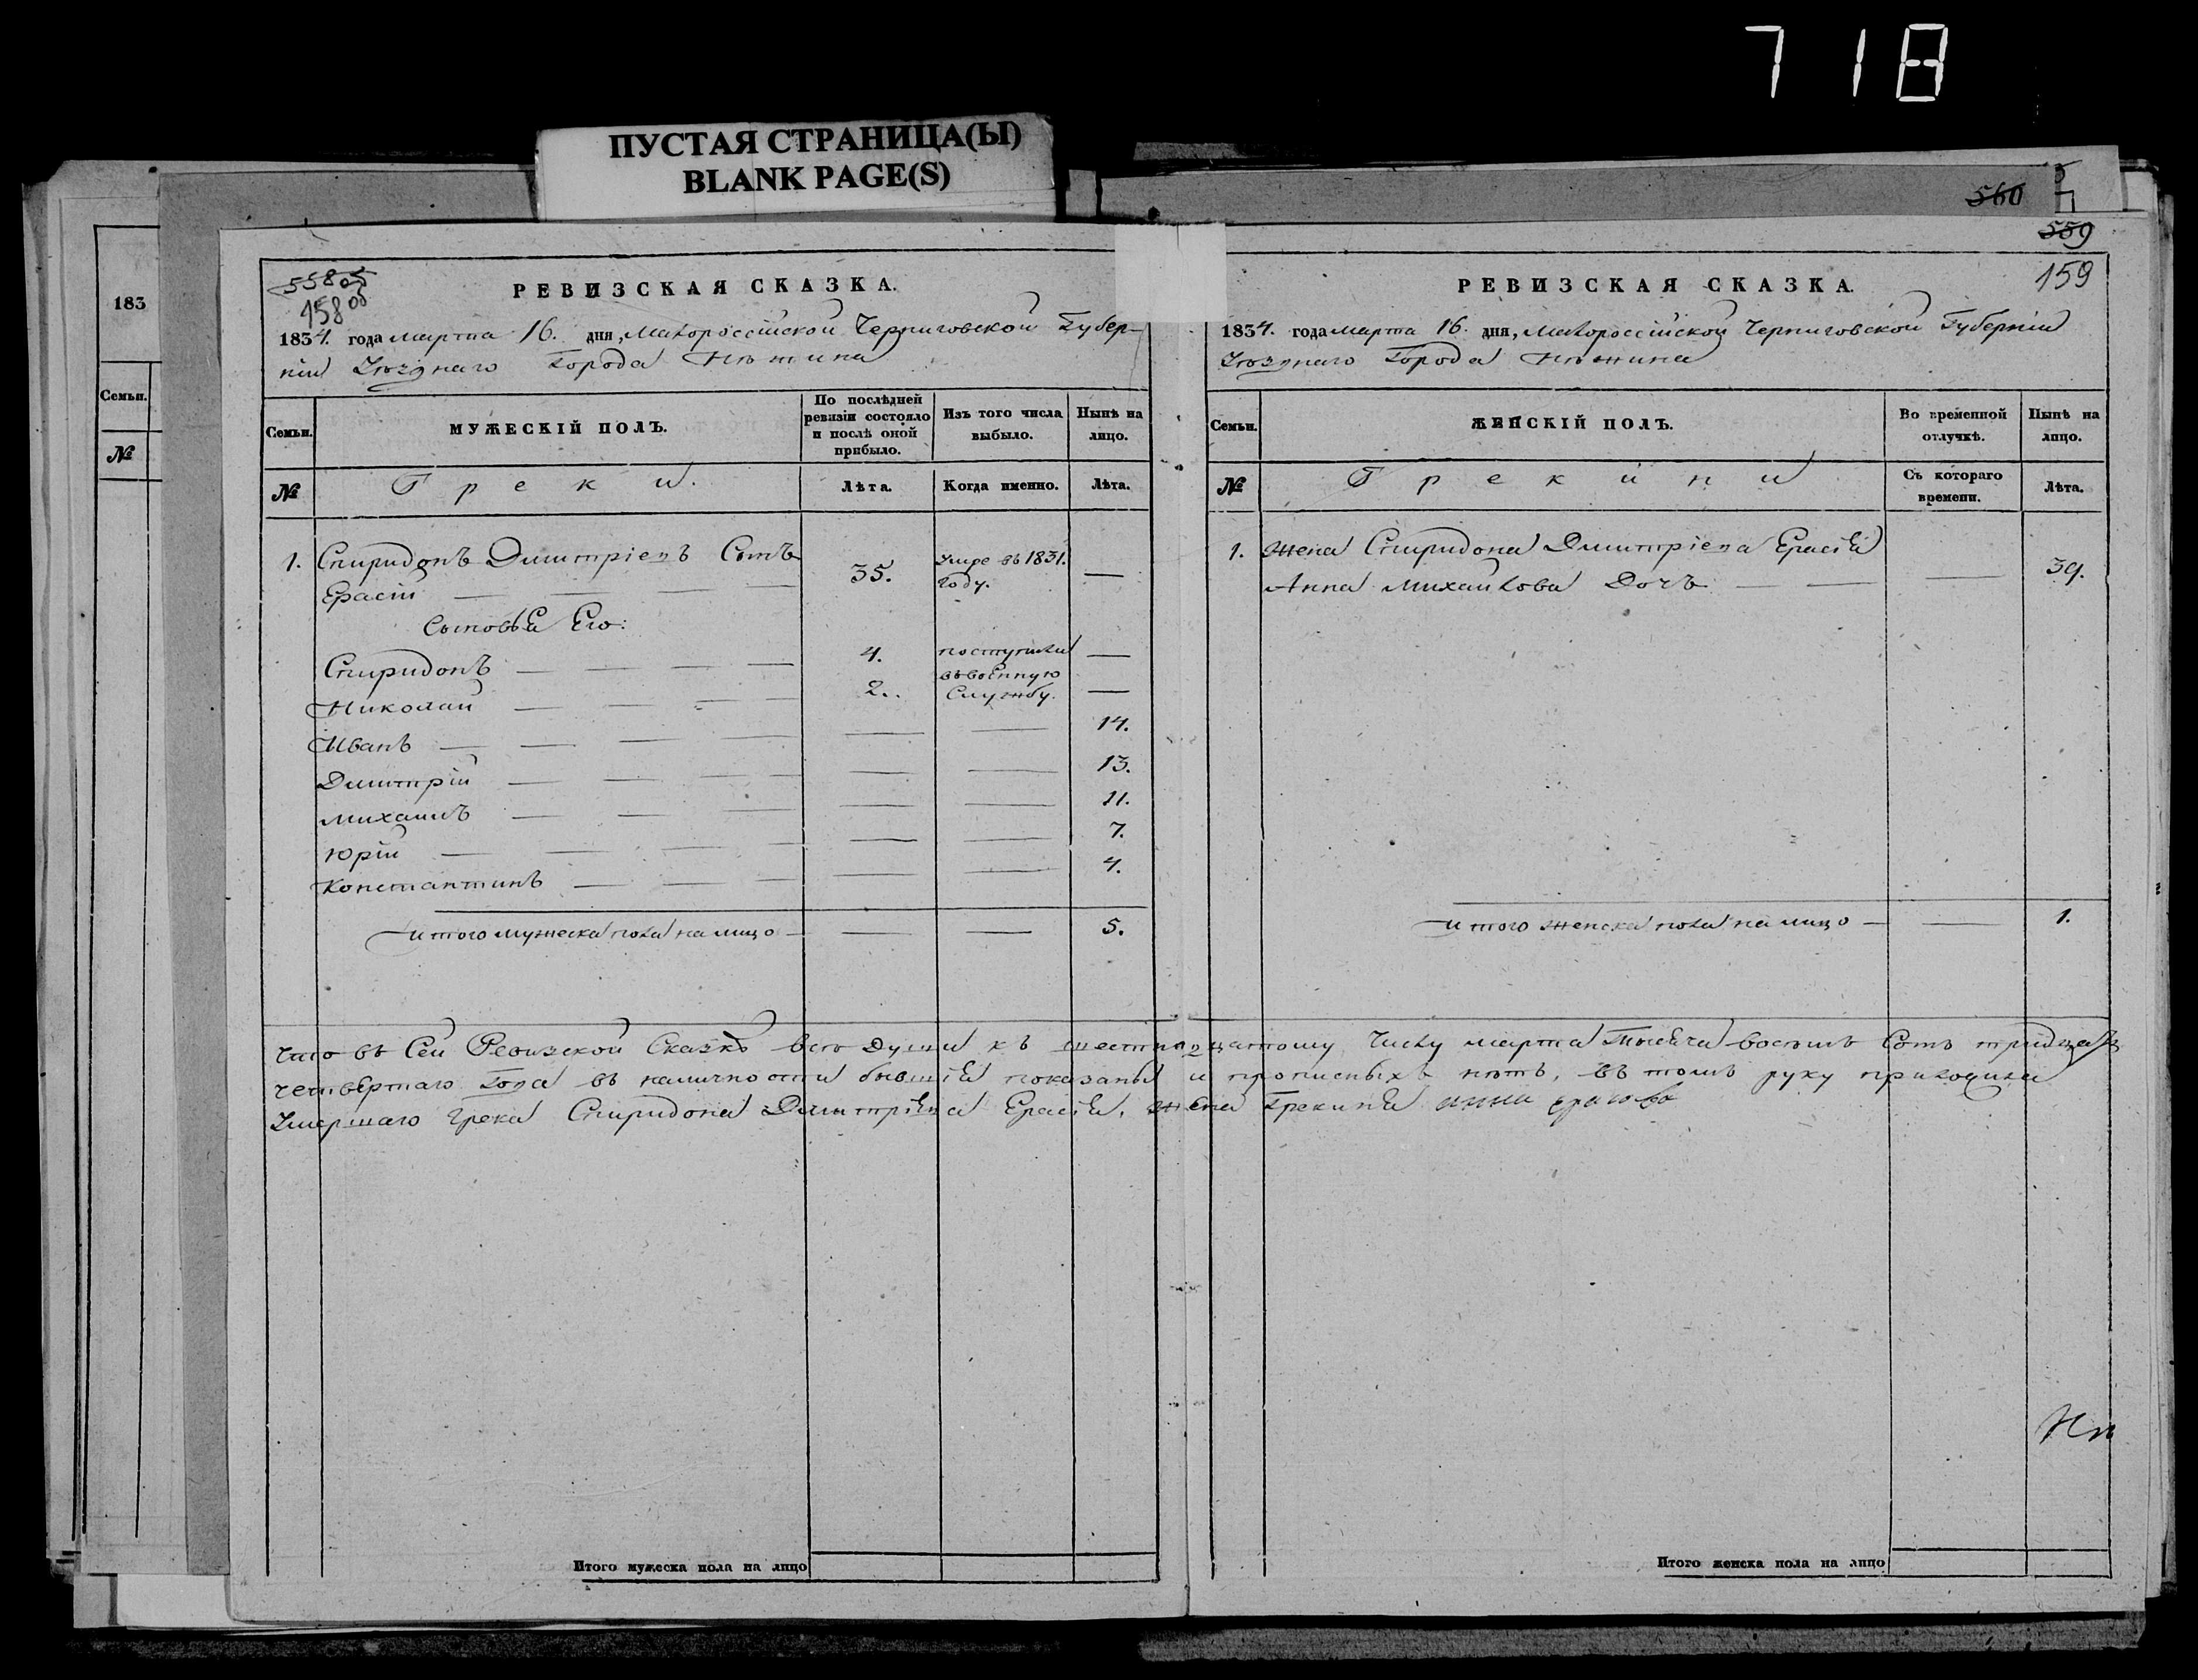 718
ПУСТАЯ СТРАНИЦА(Ы)
BLANK PAGE(S)
560
559
183
Семьи.
№
558 об
158 об
РЕВИЗСКАЯ СКАЗКА.
1834. года марта 16. дня, Малороссійской Черниговской Губер-
ніи Уѣзднаго Города Нѣжина
Семьи.
МУЖЕСКІЙ ПОЛЪ.
По послѣдней ревизіи состояло и послѣ оной прибыло.
Изъ того числа выбыло.
Нынѣ на лицо.
№
Греки.
Лѣта.
Когда именно.
Лѣта.
1. Спиридонъ Димитріевъ Сынъ
Ерасій — — — 35. Умре въ 1831. году. —
Сыновья Его:
Спиридонъ — — — 4. поступили —
въ военную
Николай — — — 2. службу. —
Иванъ — — — — — — 14.
Димитрій — — — — — 13.
Михаилъ — — — — — 11.
Юрій — — — — — — 7.
Константинъ — — — — — 4.
Итого мужеска пола на лицо — — — 5.
Что въ Сей Ревизской Сказкѣ всѣ Души къ шестнадцатому Числу марта Тысяча восемь Сотъ тридцать
четвертаго Года въ наличности бывшія показаны и прописныхъ нѣтъ, въ томъ руку приложила
Умершаго Грека Спиридона Димитріева Ерасія, жена Грекиня
Итого мужеска пола на лицо
159
РЕВИЗСКАЯ СКАЗКА.
1834. года марта 16. дня, Малороссійской Черниговской Губерніи
Уѣзднаго Города Нѣжина
Семьи.
ЖЕНСКІЙ ПОЛЪ.
Во временной отлучкѣ.
Нынѣ на лицо.
№
Грекини
Съ котораго времени.
Лѣта.
1. Жена Спиридона Димитріева Ерасія
Анна Михайлова Дочъ — — — 39.
Итого женска пола на лицо — — 1.
Итого женска пола на лицо